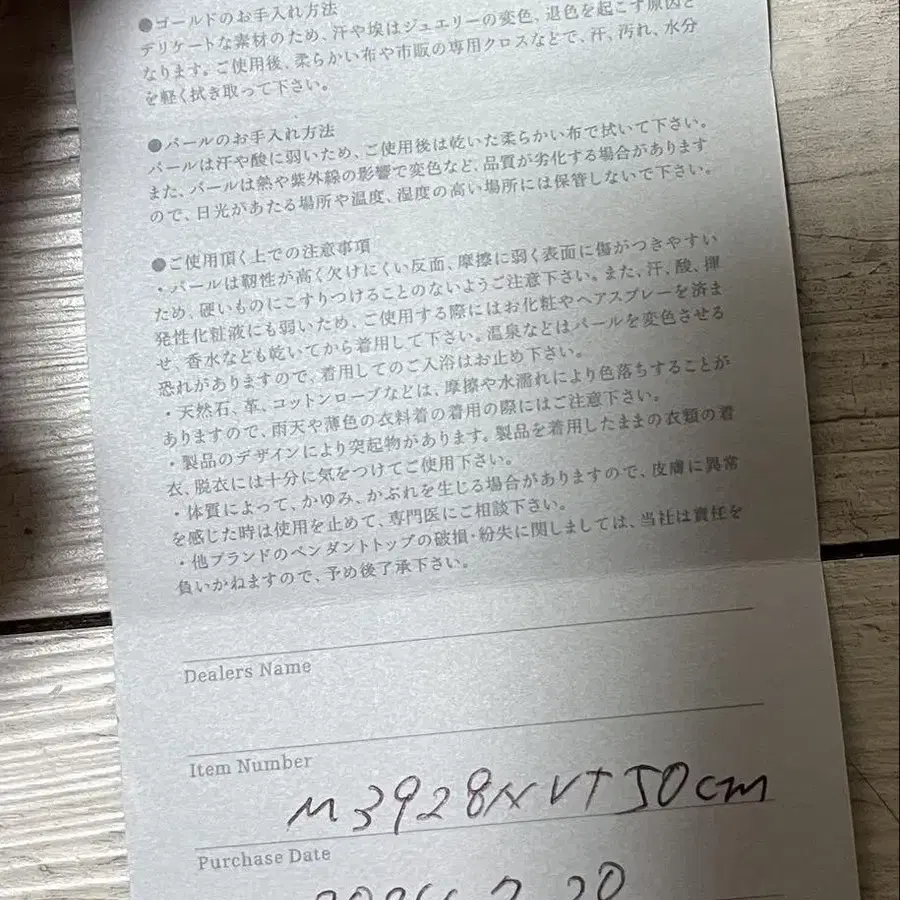 ●ゴールドのお手入れ方法
デリケートな素材のため、汗や埃はジュエリーの変色、退色を起こす原因と
なります。ご使用後、柔らかい布や市販の専用クロスなどで、汗、汚れ、水分
を軽く拭き取って下さい。
●パールのお手入れ方法
パールは汗や酸に弱いため、ご使用後は乾いた柔らかい布で拭いて下さい。
また、パールは熱や紫外線の影響で変色など、品質が劣化する場合があります
ので、日光があたる場所や温度、湿度の高い場所には保管しないで下さい。
●ご使用頂く上での注意事項
・パールは靭性が高く欠けにくい反面、摩擦に弱く表面に傷がつきやすい
ため、硬いものにこすりつけることのないようご注意下さい。また、汗、酸、揮
発性化粧液にも弱いため、ご使用する際にはお化粧やヘアスプレーを済ま
せ、香水なども乾いてから着用して下さい。温泉などはパールを変色させる
恐れがありますので、着用してのご入浴はお止め下さい。
・天然石、革、コットンロープなどは、摩擦や水濡れにより色落ちすることが
ありますので、雨天や薄色の衣料着の着用の際にはご注意下さい。
・製品のデザインにより突起物があります。製品を着用したままの衣類の着
衣、脱衣には十分に気をつけてご使用下さい。
・体質によって、かゆみ、かぶれを生じる場合がありますので、皮膚に異常
を感じた時は使用を止めて、専門医にご相談下さい。
・他ブランドのペンダントトップの破損・紛失に関しましては、当社は責任を
負いかねますので、予め後了承下さい。
Dealers Name
Item Number
M3928NVT 50cm
Purchase Date